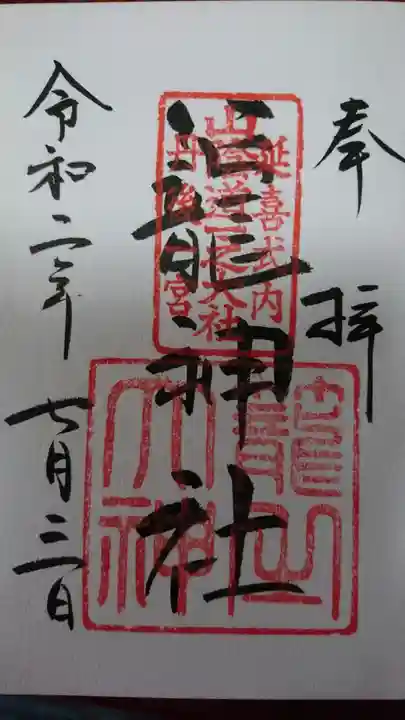 奉拝
延喜式内
山陰道一之大社
丹後一宮
籠神社
籠之
大神
令和二年七月三日